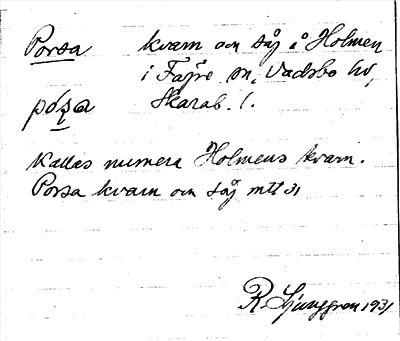 Porsa kvarn och såg å Holmen
i Fägre sn, Vadsbo hd,
pósa Skarab. l.
Kallas numera Holmens kvarn.
Porsa kvarn och såg mtt 31
R. Ljunggren 1931